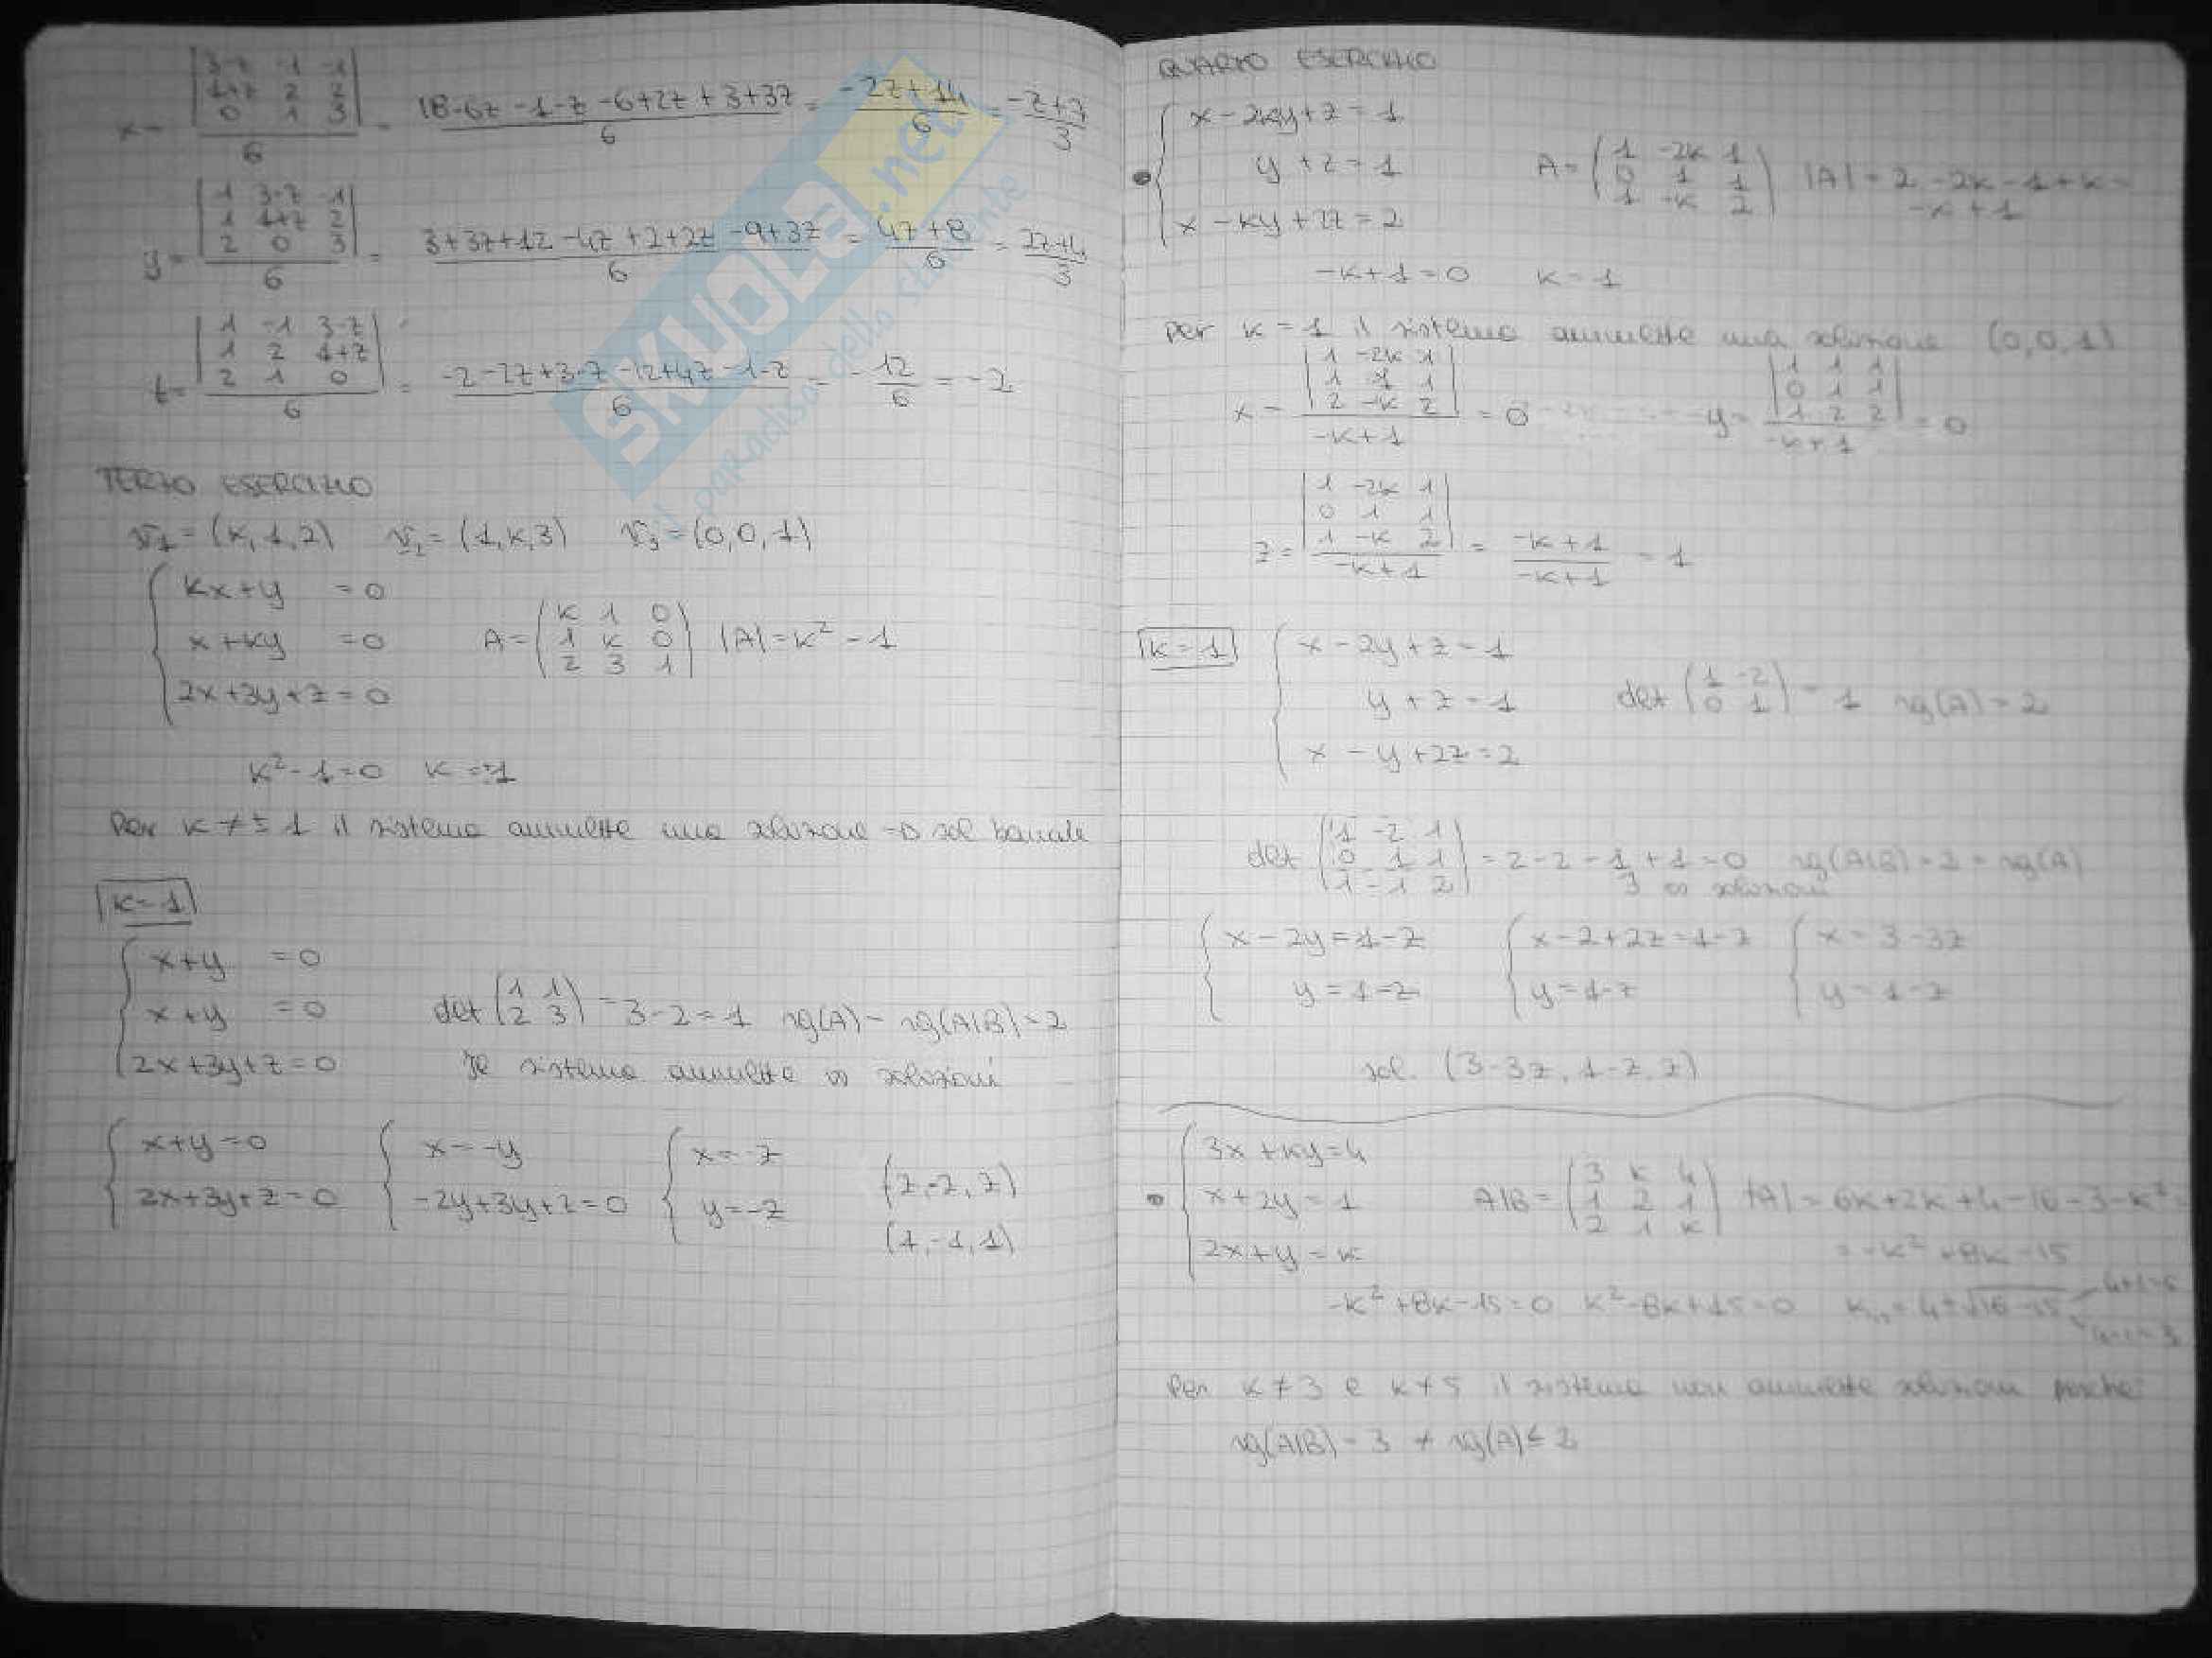 x = |3-z -1 -1; 1+z 2 2; 0 1 3| / 6 = (18-6z-1-z-6+2z+3+3z)/6 = (-2z+14)/6 = (-z+7)/3
y = |1 3-z -1; 1 1+z 2; 2 0 3| / 6 = (3+3z+12-4z+2+2z-9+3z)/6 = (4z+8)/6 = (2z+4)/3
t = |1 -1 3-z; 1 2 1+z; 2 1 0| / 6 = (-2-2z+3-z-12+4z-1-z)/6 = -12/6 = -2
TERZO ESERCIZIO
v1 = (k,1,2) v2 = (1,k,3) v3 = (0,0,1)
kx+y = 0
x+ky = 0
2x+3y+z = 0
A = (k 1 0; 1 k 0; 2 3 1) |A| = k² - 1
k²-1=0 k=±1
Per k ≠ ± 1 il sistema ammette una soluzione → sol banale
k=1
x+y = 0
x+y = 0
2x+3y+z = 0
det (1 1; 2 3) = 3-2 = 1 rg(A) = rg(A|B) = 2
Il sistema ammette ∞ soluzioni
x+y=0
2x+3y+z=0
x=-y
-2y+3y+z=0
x=-z
y=-z
(z,-z,z)
(1,-1,1)
QUARTO ESERCIZIO
x-2ky+z=1
y+z=1
x-ky+2z=2
A = (1 -2k 1; 0 1 1; 1 -k 2) |A| = 2-2k-1+k =
-k+1
-k+1=0 k=1
Per k=1 il sistema ammette una soluzione (0,0,1)
x = |1 -2k 1; 1 1 1; 2 -k 2| / (-k+1) = 0 y = |1 1 1; 0 1 1; 1 2 2| / (-k+1) = 0
z = |1 -2k 1; 0 1 1; 1 -k 2| / (-k+1) = (-k+1)/(-k+1) = 1
k=1
x-2y+z=1
y+z=1
x-y+2z=2
det (1 -2; 0 1) = 1 rg(A) = 2
det (1 -2 1; 0 1 1; 1 -1 2) = 2-2-1+1=0 rg(A|B) = 2 = rg(A)
∃ ∞ soluzioni
x-2y=1-z
y=1-z
x-2+2z=1-z
y=1-z
x=3-3z
y=1-z
sol. (3-3z, 1-z, z)
3x+ky=4
x+2y=1
2x+y=k
A|B = (3 k 4; 1 2 1; 2 1 k) |A| = 6k+2k+4-16-3-k² =
= -k²+8k-15
-k²+8k-15=0 k²-8k+15=0
Per k≠3 e k≠5 il sistema non ammette soluzioni perché
rg(A|B) = 3 ≠ rg(A) ≤ 2
SKUOLA.net
il paradiso dello studente